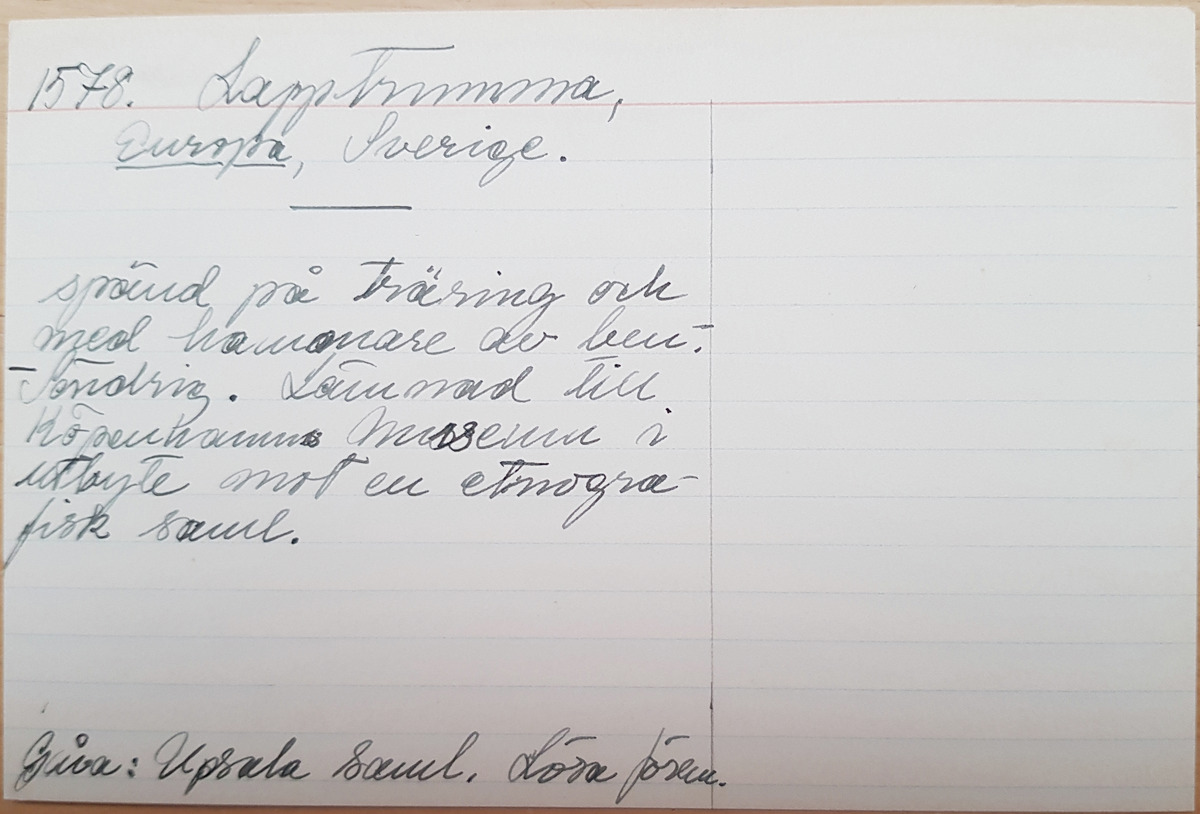 1578. Lapptrumma,
Europa, Sverige.
spänd på träring och
med hammare av ben.
Söndrig. Lämnad till
Köpenhamns Museum i
utbyte mot en etnogra-
fisk saml.
Gåva: Upsala saml. Lösa förem.